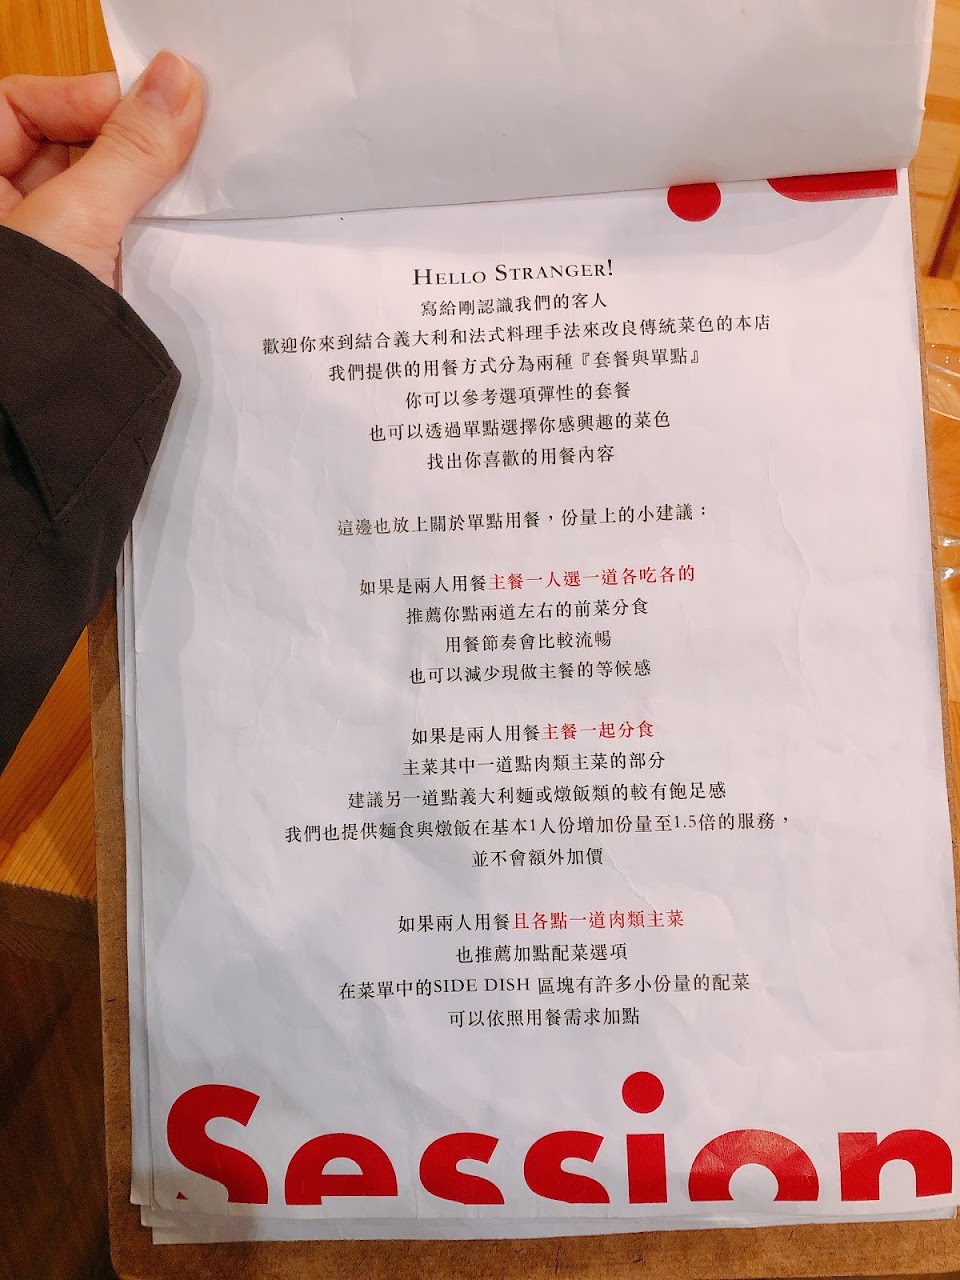 HELLO STRANGER!
寫給剛認識我們的客人
歡迎你來到結合義大利和法式料理手法來改良傳統菜色的本店
我們提供的用餐方式分為兩種『套餐與單點』
你可以參考選項彈性的套餐
也可以透過單點選擇你感興趣的菜色
找出你喜歡的用餐內容
這邊也放上關於單點用餐，份量上的小建議：
如果是兩人用餐主餐一人選一道各吃各的
推薦你點兩道左右的前菜分食
用餐節奏會比較流暢
也可以減少現做主餐的等候感
如果是兩人用餐主餐一起分食
主菜其中一道點肉類主菜的部分
建議另一道點義大利麵或燉飯類的較有飽足感
我們也提供麵食與燉飯在基本1人份增加份量至1.5倍的服務，
並不會額外加價
如果兩人用餐且各點一道肉類主菜
也推薦加點配菜選項
在菜單中的SIDE DISH 區塊有許多小份量的配菜
可以依照用餐需求加點
Session